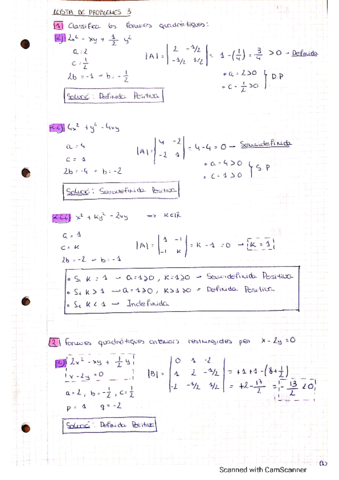 LLISTA DE PROBLEMES 3
1 Classifica les formes quadràtiques:
2x² - xy + 1/2 y²
a = 2
c = 1/2
2b = -1 → b = -1/2
|A| = | 2 -1/2 | -1/2 1/2 | = 1 - (1/4) = 3/4 > 0 → Definida
→ a = 2 > 0
→ c = 1/2 > 0
D.P
Solució: Definida Positiva
4x² + y² - 4xy
a = 4
c = 1
2b = -4 → b = -2
|A| = | 4 -2 | -2 1 | = 4 - 4 = 0 → Semidefinida
→ a = 4 > 0
→ c = 1 > 0
S.P
Solució: Semidefinida Positiva
x² + ky² - 2xy → k∈ℝ
a = 1
c = k
2b = -2 → b = -1
|A| = | 1 -1 | -1 k | = k - 1 = 0 → k = 1
• Si k = 1 → a = 1 > 0, k = 1 > 0 → Semidefinida Positiva
• Si k > 1 → a = 1 > 0, k > 0 → Definida Positiva
• Si k < 1 → Indefinida
2 Formes quadràtiques anteriors restringides per x - 2y = 0
2x² - xy + 1/2 y²
x - 2y = 0
a = 2, b = -1/2, c = 1/2
p = 1 q = -2
|B| = | 0 1 -2 | 1 2 -1/2 | -2 -1/2 1/2 | = +1 +1 - (8 + 1/2) = +2 - 17/2 = -13/2 < 0
Solució: Definida Positiva
Scanned with CamScanner